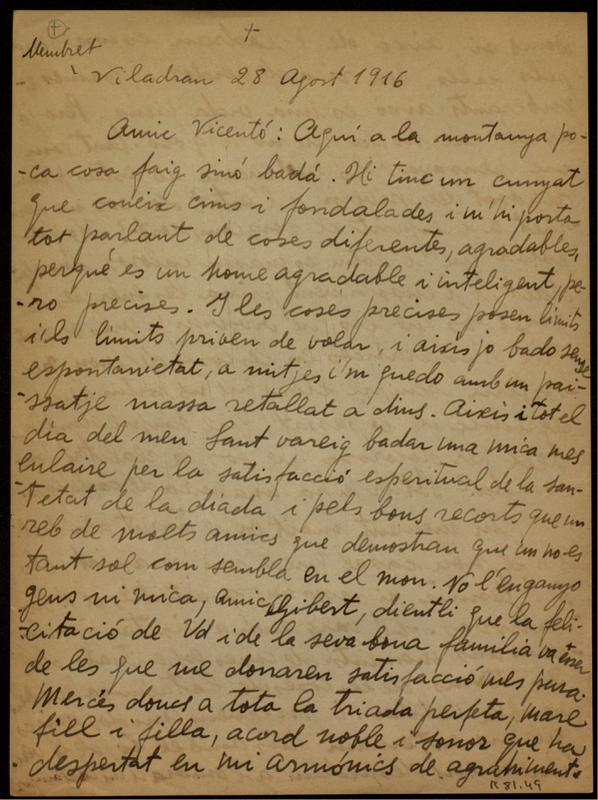 +
+
Membret
Viladrau 28 Agost 1916
Amic Vicentó: Aquí a la montanya po-
-ca cosa faig sinó badá. Hi tinc un cunyat
que coneix cims i fondalades i m'hi porta
tot parlant de coses diferentes, agradables,
perqué es un home agradable i inteligent, pe-
-ro precises. I les coses precises posen limits
i'ls limits priven de volar, i aixis jo bado sense
espontanietat, a mitjes i'm quedo amb un pai-
-ssatje massa retallat a dins. Aixis i tot el
día del meu Sant vareig badar una mica mes
enlaire per la satisfacció esperitual de la san-
-tetat de la diada i pels bons recorts que un
reb de molts amics que demostran que un no es
tant sol com sembla en el mon. No l'enganyo
gens ni mica, amic Gibert, dientli que la feli-
-citació de Vd i de la seva bona familia va esser
de les que me donaren satisfacció mes pura.
Mercés doncs a tota la triada perfeta, mare
fill i filla, acord noble i sonor que ha
despertat en mi armónics de agraiment.
R 81.49